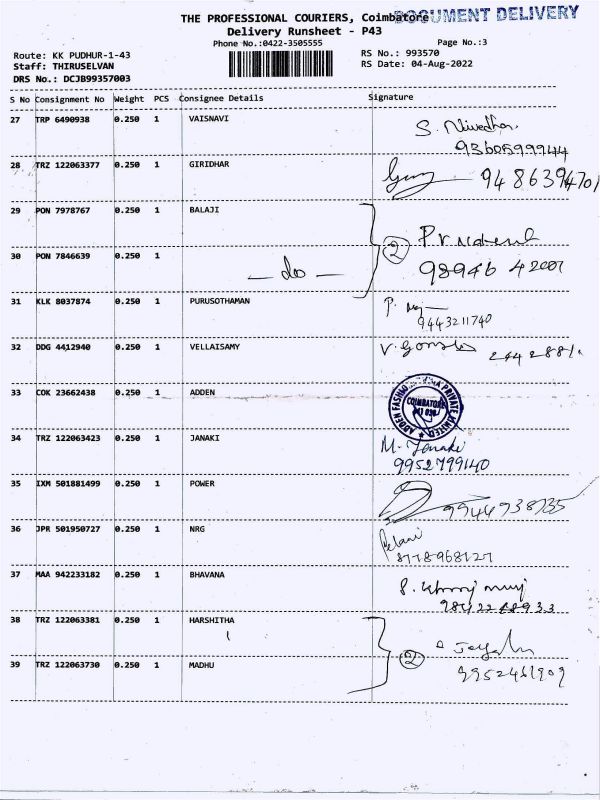 THE PROFESSIONAL COURIERS, Coimbatore
DOCUMENT DELIVERY
Delivery Runsheet - P43
Phone No.:0422-3505555
Page No.:3
Route: KK PUDHUR-1-43
RS No.: 993570
Staff: THIRUSELVAN
RS Date: 04-Aug-2022
DRS No.: DCJB99357003
S No Consignment No Weight PCS Consignee Details Signature
27 TRP 6490938 0.250 1 VAISNAVI
S. Nivedha
9360599944
28 TRZ 122063377 0.250 1 GIRIDHAR
9486394701
29 PON 7978767 0.250 1 BALAJI
2
30 PON 7846639 0.250 1 — do —
98946 42001
31 KLK 8037874 0.250 1 PURUSOTHAMAN
P.
9443211740
32 DDG 4412940 0.250 1 VELLAISAMY
V.
33 COK 23662438 0.250 1 ADDEN
ADDEN FASHION PRIVATE LIMITED
COIMBATORE
34 TRZ 122063423 0.250 1 JANAKI
M. Janaki
9952799140
35 IXM 501881499 0.250 1 POWER
9944738735
36 JPR 501950727 0.250 1 NRG
8778968127
37 MAA 942233182 0.250 1 BHAVANA
38 TRZ 122063381 0.250 1 HARSHITHA
2
39 TRZ 122063730 0.250 1 MADHU
9952461909